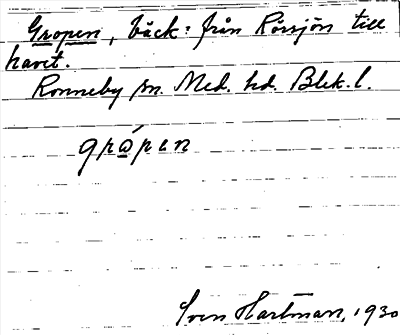 Gropen, bäck: från Rörsjön till
havet.
Ronneby sn. Med. hd. Blek. l.
grópen
Sven Hartman, 1930